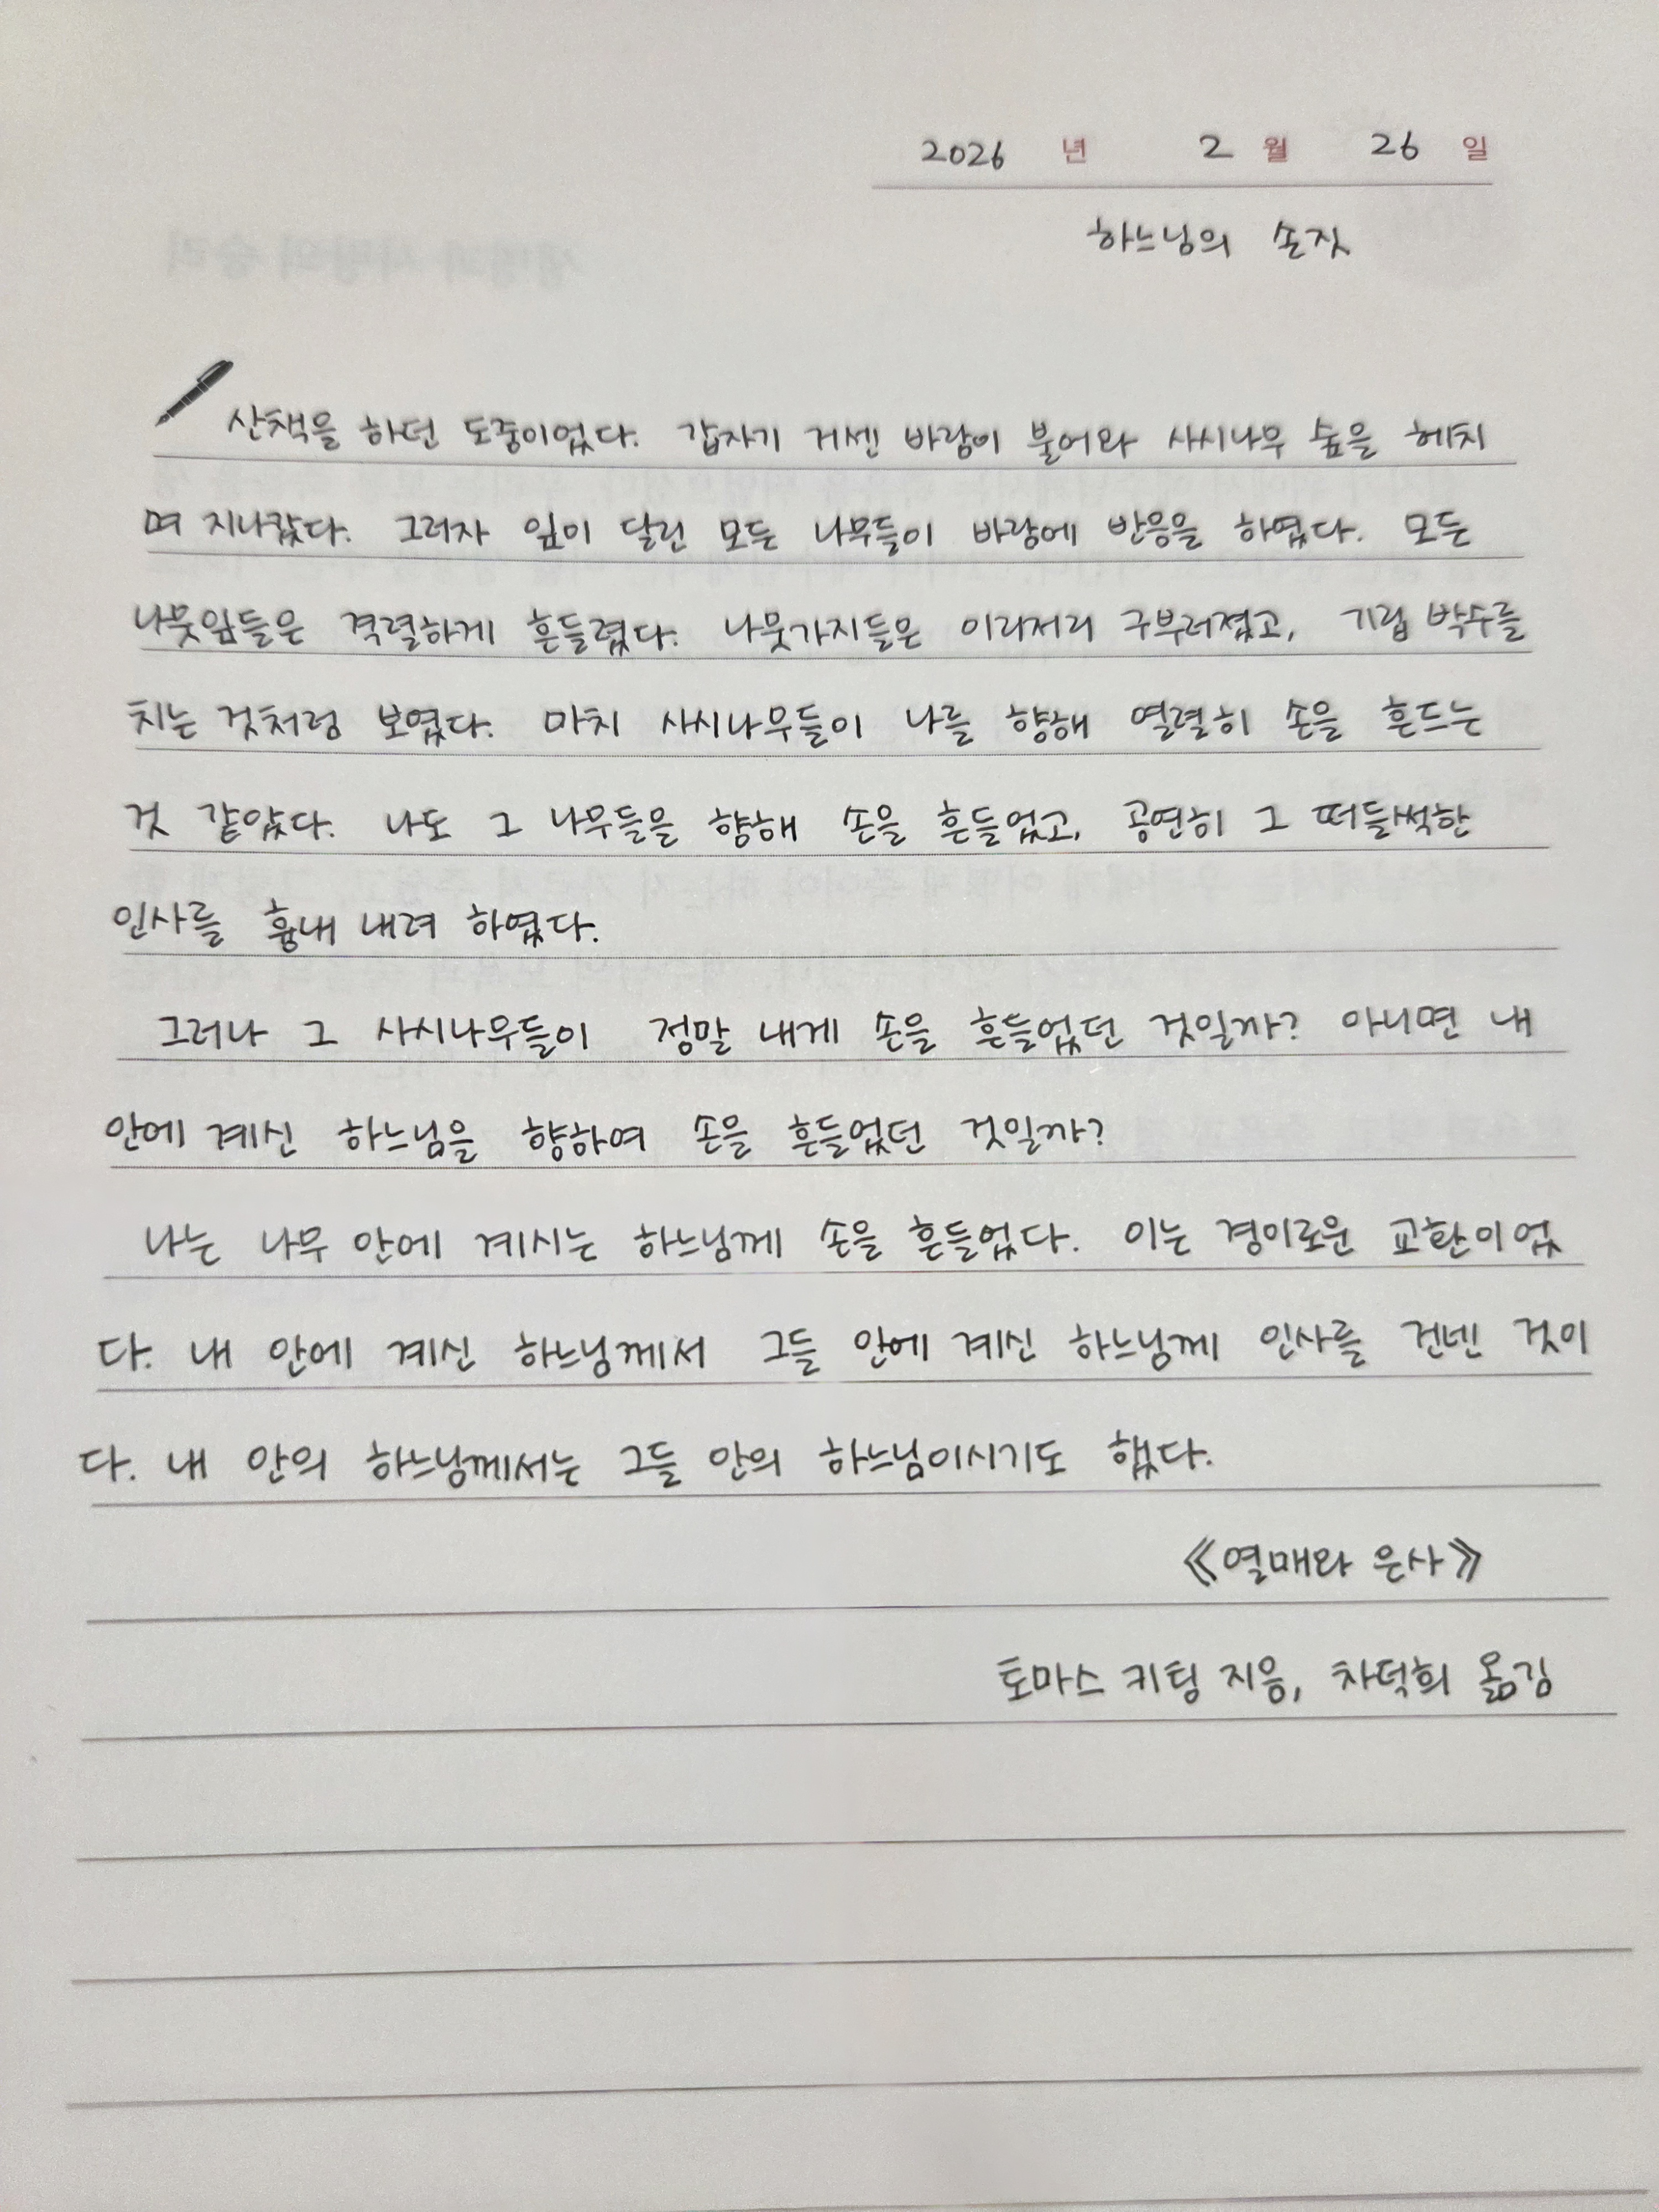 2026 년 2 월 26 일
하느님의 손짓
산책을 하던 도중이었다. 갑자기 거센 바람이 불어와 사시나무 숲을 헤치
며 지나갔다. 그러자 잎이 달린 모든 나무들이 바람에 반응을 하였다. 모든
나뭇잎들은 격렬하게 흔들렸다. 나뭇가지들은 이리저리 구부러졌고, 기립 박수를
치는 것처럼 보였다. 마치 사시나무들이 나를 향해 열렬히 손을 흔드는
것 같았다. 나도 그 나무들을 향해 손을 흔들었고, 공연히 그 떠들썩한
인사를 흉내 내려 하였다.
그러나 그 사시나무들이 정말 내게 손을 흔들었던 것일까? 아니면 내
안에 계신 하느님을 향하여 손을 흔들었던 것일까?
나는 나무 안에 계시는 하느님께 손을 흔들었다. 이는 경이로운 교환이었
다. 내 안에 계신 하느님께서 그들 안에 계신 하느님께 인사를 건넨 것이
다. 내 안의 하느님께서는 그들 안의 하느님이시기도 했다.
《열매와 은사》
토마스 키팅 지음, 차덕희 옮김